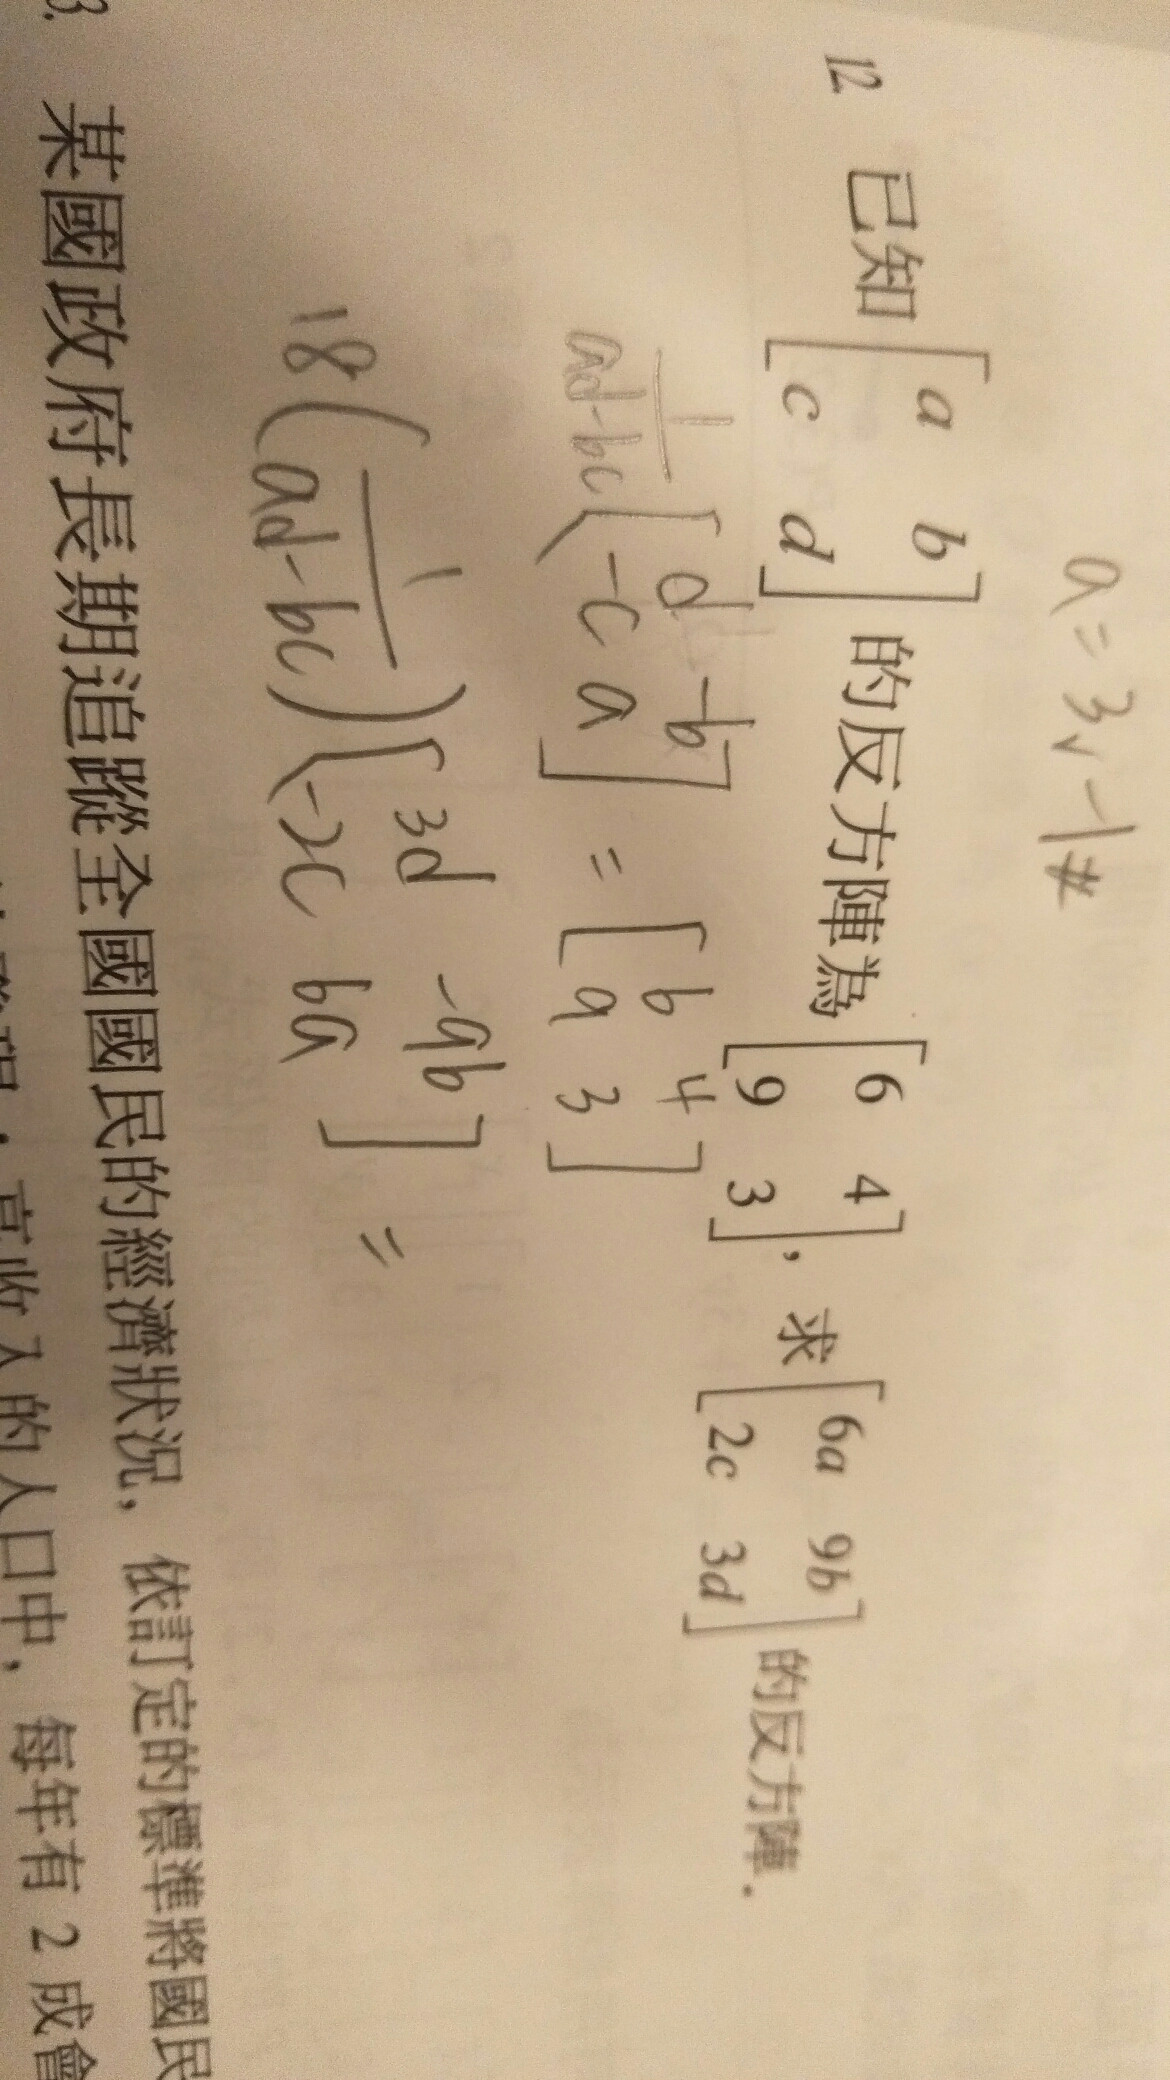 a = 3, -1 #
12 已知 [ a b c d ] 的反方陣為 [ 6 4 9 3 ], 求 [ 6a 9b 2c 3d ] 的反方陣.
1/(ad-bc) [ d -b -c a ] = [ 6 4 9 3 ]
18 ( 1/(ad-bc) ) [ 3d -9b -2c 6a ] =
3. 某國政府長期追蹤全國國民的經濟狀況, 依訂定的標準將國民
高收入的人口中, 每年有 2 成會